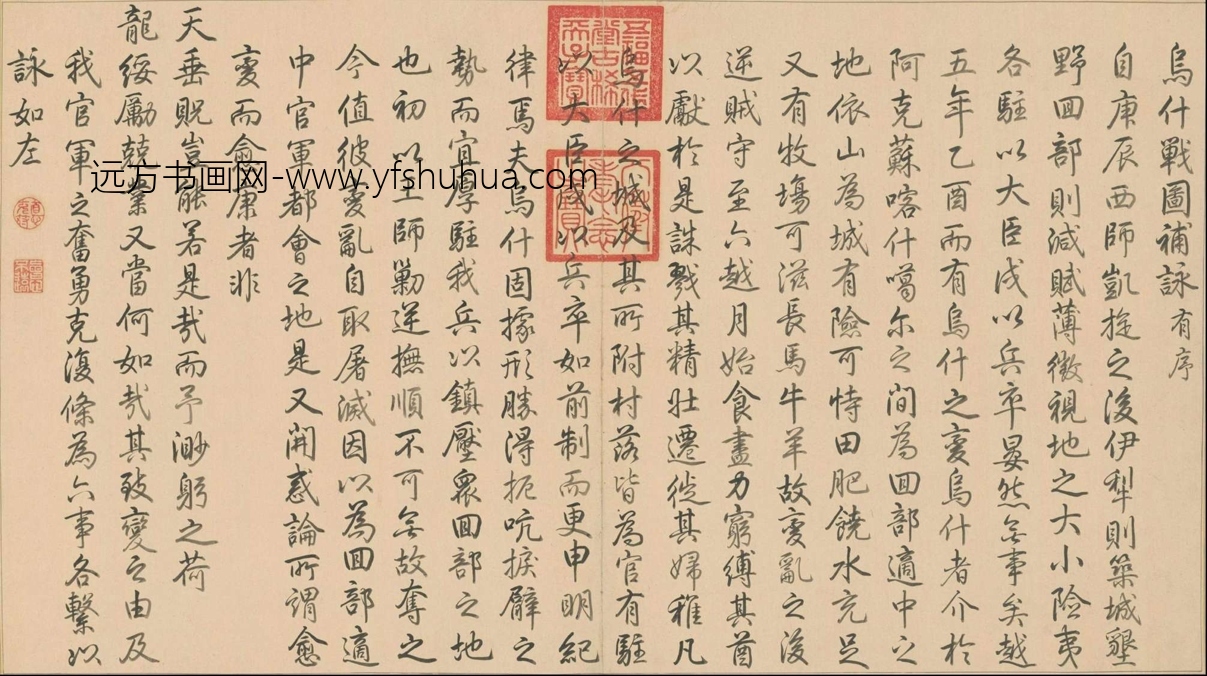 烏什戰圖補詠有序
自庚辰西師凱旋之後伊犁則築城墾
野回部則減賦薄徵視地之大小險夷
各駐以大臣戍以兵卒晏然無事矣越
五年乙酉而有烏什之變烏什者介於
阿克蘇喀什噶尔之間為回部適中之
地依山為城有險可恃田肥饒水充足
又有牧場可滋長馬牛羊故變亂之後
逆賊守至六越月始食盡力窮縛其酋
以獻於是誅戮其精壯遷徙其婦稚凡
烏什之城及其所附村落皆為官有駐
以大臣戍以兵卒如前制而更申明紀
律焉夫烏什固據形勝得扼吭捩臂之
勢而宜厚駐我兵以鎮壓眾回部之地
也初以王師勦逆撫順不可無故奪之
今值彼變亂自取屠滅因以為回部適
中官軍都會之地是又開惑論所謂愈
變而愈康者非
天垂貺豈能若是哉而予渺躬之荷
龍綏勵兢業又當何如哉其致變之由及
我官軍之奮勇克復條為六事各繫以
詠如左
五福五代堂古稀天子寶
八徵耄念之寶
远方书画网-www.yfshuhua.com